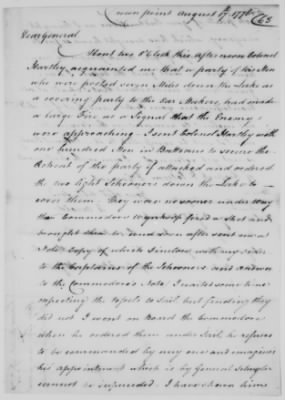 Crown point August 7th 1776
63
Dear General
About two o'Clock this Afternoon Colonel
Hartley acquainted me that a party of his Men
who were posted seven Miles down the Lake as
a covering party to the Oar Makers, had made
a Large Fire as a Signal that the Enemy
were approaching I sent Colonel Hartley with
one hundred Men in Batteaus to secure the
Retreat of the party if attacked and ordered
the two light Schooners down the Lake to
cover them They were no sooner under way
than Commodore Wynkoop fired a Shot and
brought them to and soon after sent me a
Note Copy of which I inclose with my orders
to the Captains of the Schooners and answer
to the Commodores Note I waited some time
expecting the Vessels to sail but finding they
did not I went on Board the Commodore
when he ordered them under Sail he refuses
to be commanded by any one and imagines
his appointment which is by General Schuyler
cannot be superceded I have shewn him